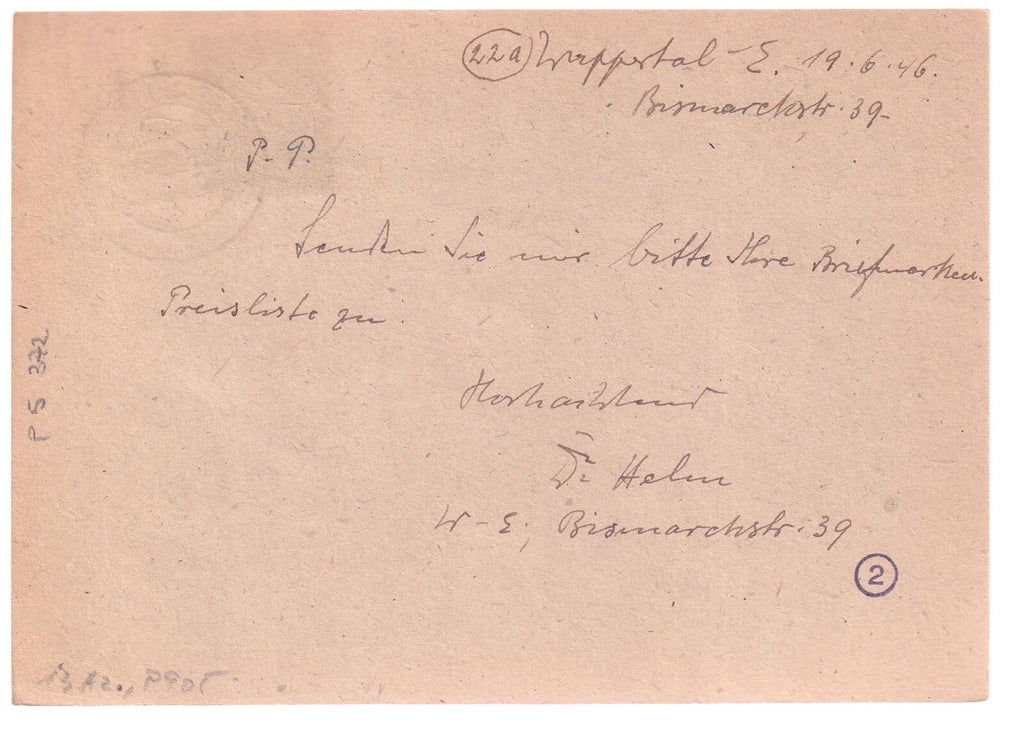 (22a) Wuppertal - E. 19.6.46.
Bismarckstr. 39
P. P.
Senden Sie mir bitte Ihre Briefmarken-
Preisliste zu.
Hochachtend
Dr Helm
W - E, Bismarckstr. 39
2
P 5 372
13 Az., P905